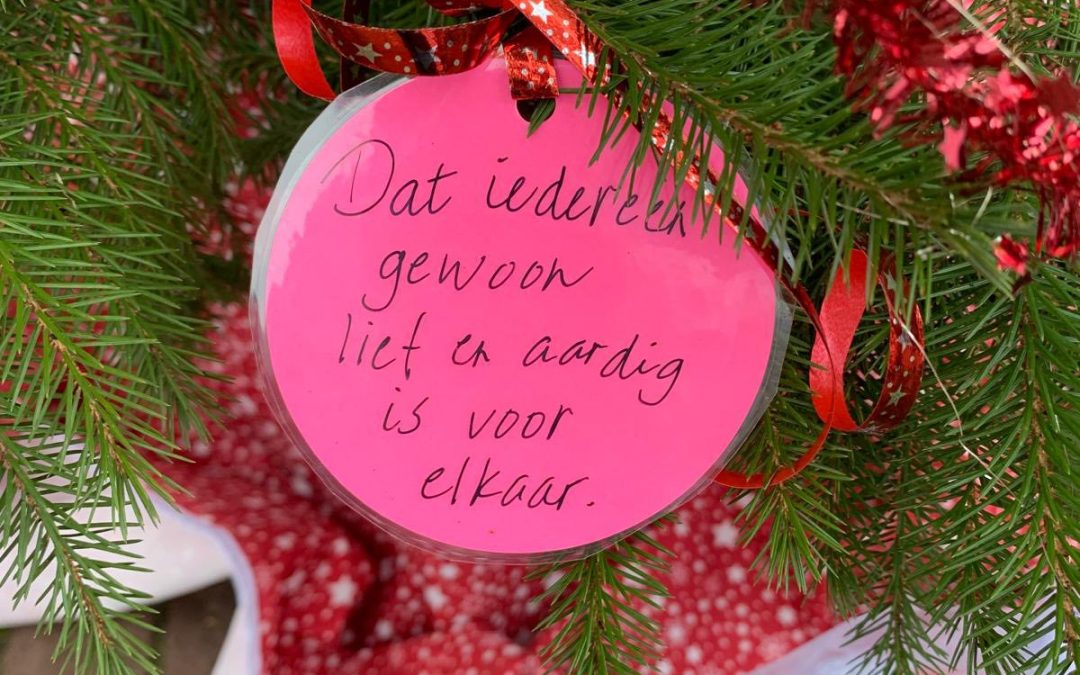 Dat iedereen
gewoon
lief en aardig
is voor
elkaar.